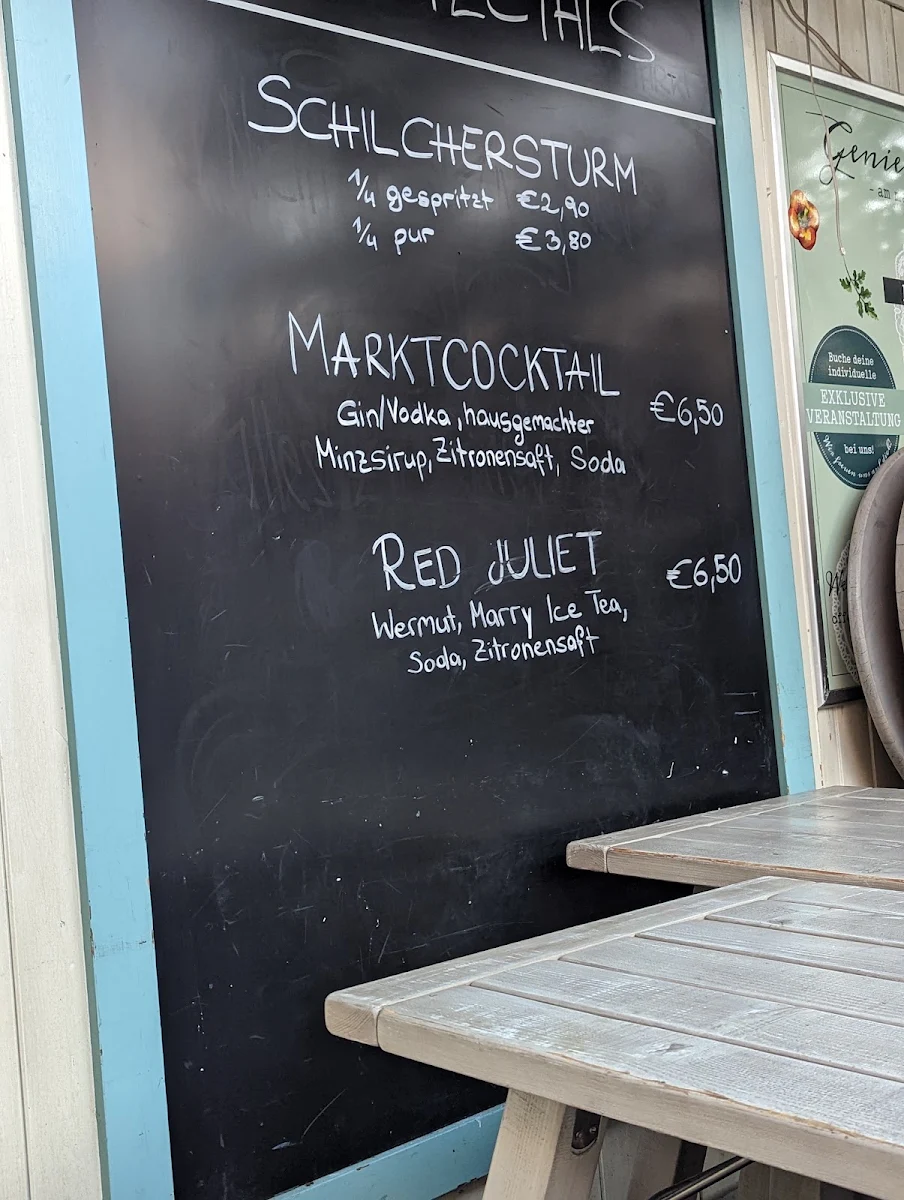 SCHILCHERSTURM
1/4 gespritzt €2,90
1/4 pur €3,80
MARKTCOCKTAIL
Gin/Vodka, hausgemachter €6,50
Minzsirup, Zitronensaft, Soda
RED JULIET €6,50
Wermut, Marry Ice Tea,
Soda, Zitronensaft
Buche deine
individuelle
EXKLUSIVE
VERANSTALTUNG
bei uns!